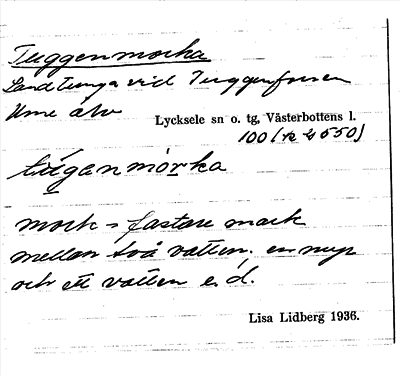 Tuggenmorka
Landtunga vid Tuggenforsen
Ume älv
Lycksele sn o. tg, Västerbottens l.
100 (R 4550)
túganmòrka
mork = fastare mark
mellan två vatten, en myr
och ett vatten e.d.
Lisa Lidberg 1936.